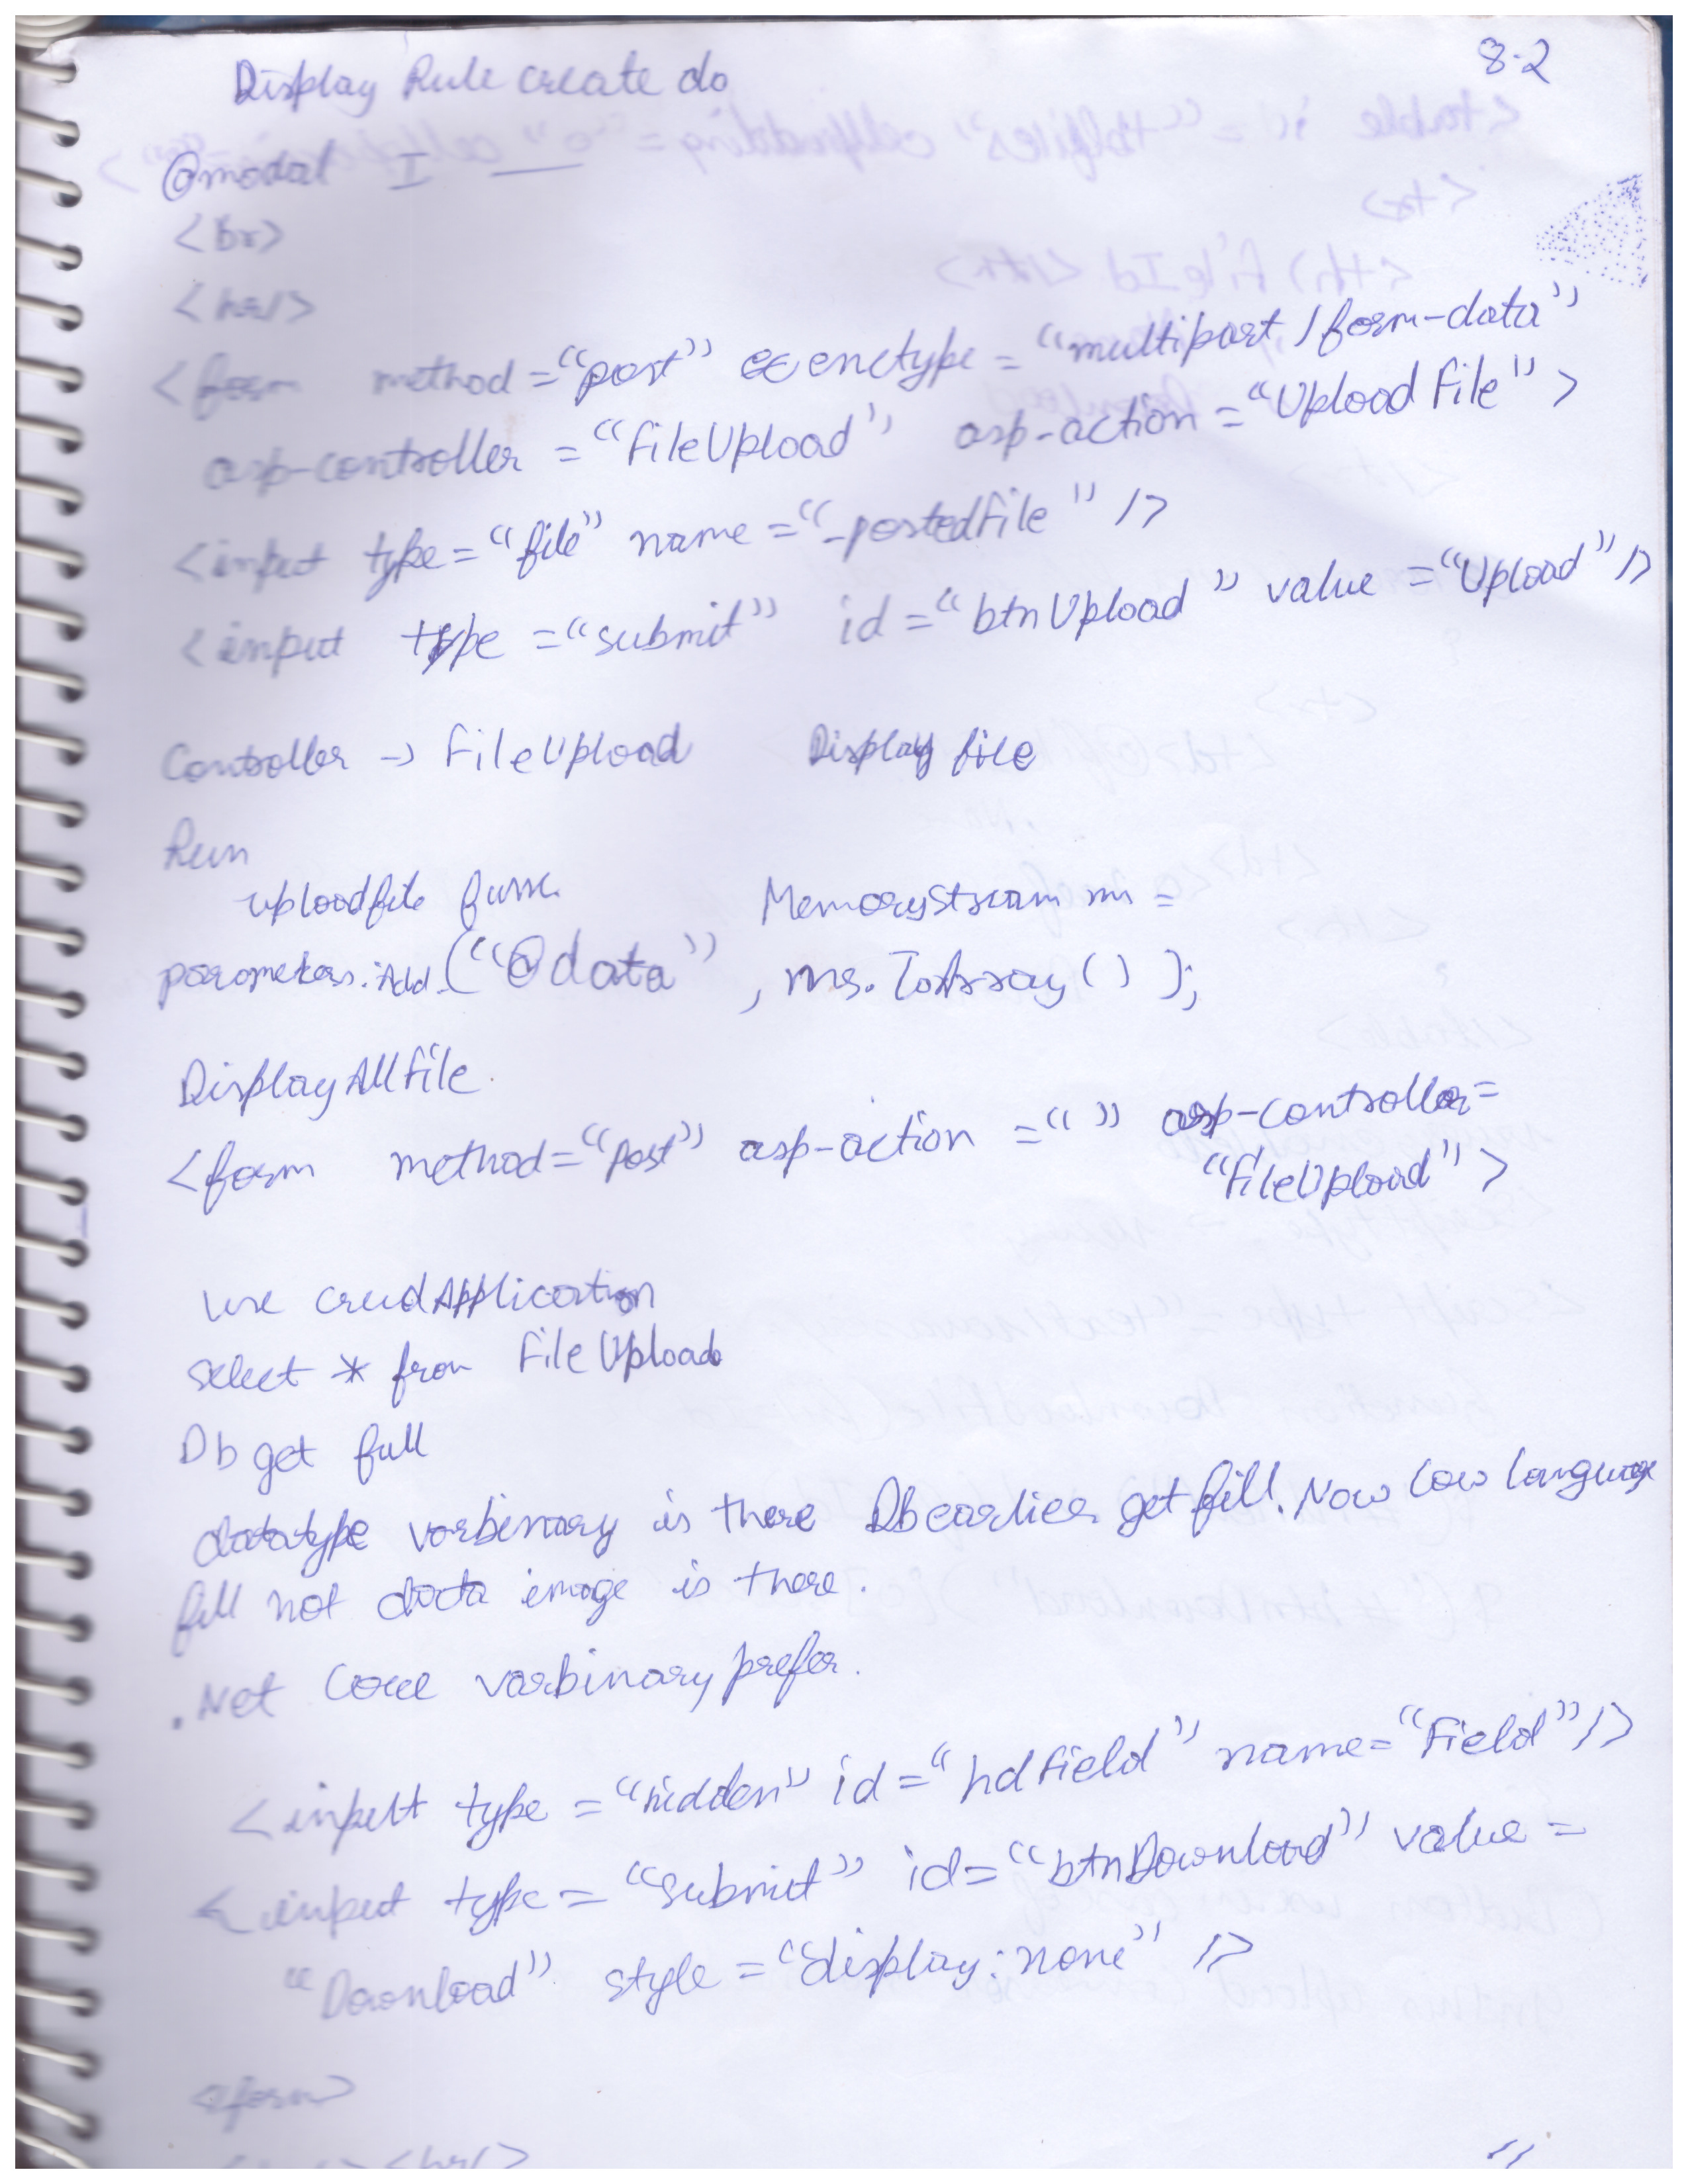 8.2
Display Rule create do
@modal I —
<br>
<hr/>
<form method="post" enctype="multipart/form-data"
asp-controller="FileUpload" asp-action="UploadFile">
<input type="file" name="_postedFile"/>
<input type="submit" id="btnUpload" value="Upload"/>
Controller -> FileUpload Display file
Run
uploadfile func. MemoryStream ms =
parameters.Add("@data", ms.ToArray());
DisplayAllFile.
<form method="Post" asp-action="" asp-controller=
"FileUpload">
use crudApplication
select * from FileUpload
Db get full
datatype varbinary is there Db earlier get fill. Now low language
fill not data image is there.
.Net Core varbinary prefer.
<input type="hidden" id="hdField" name="Field"/>
<input type="submit" id="btnDownload" value=
"Download" style="display:none"/>
<form>
<br/>